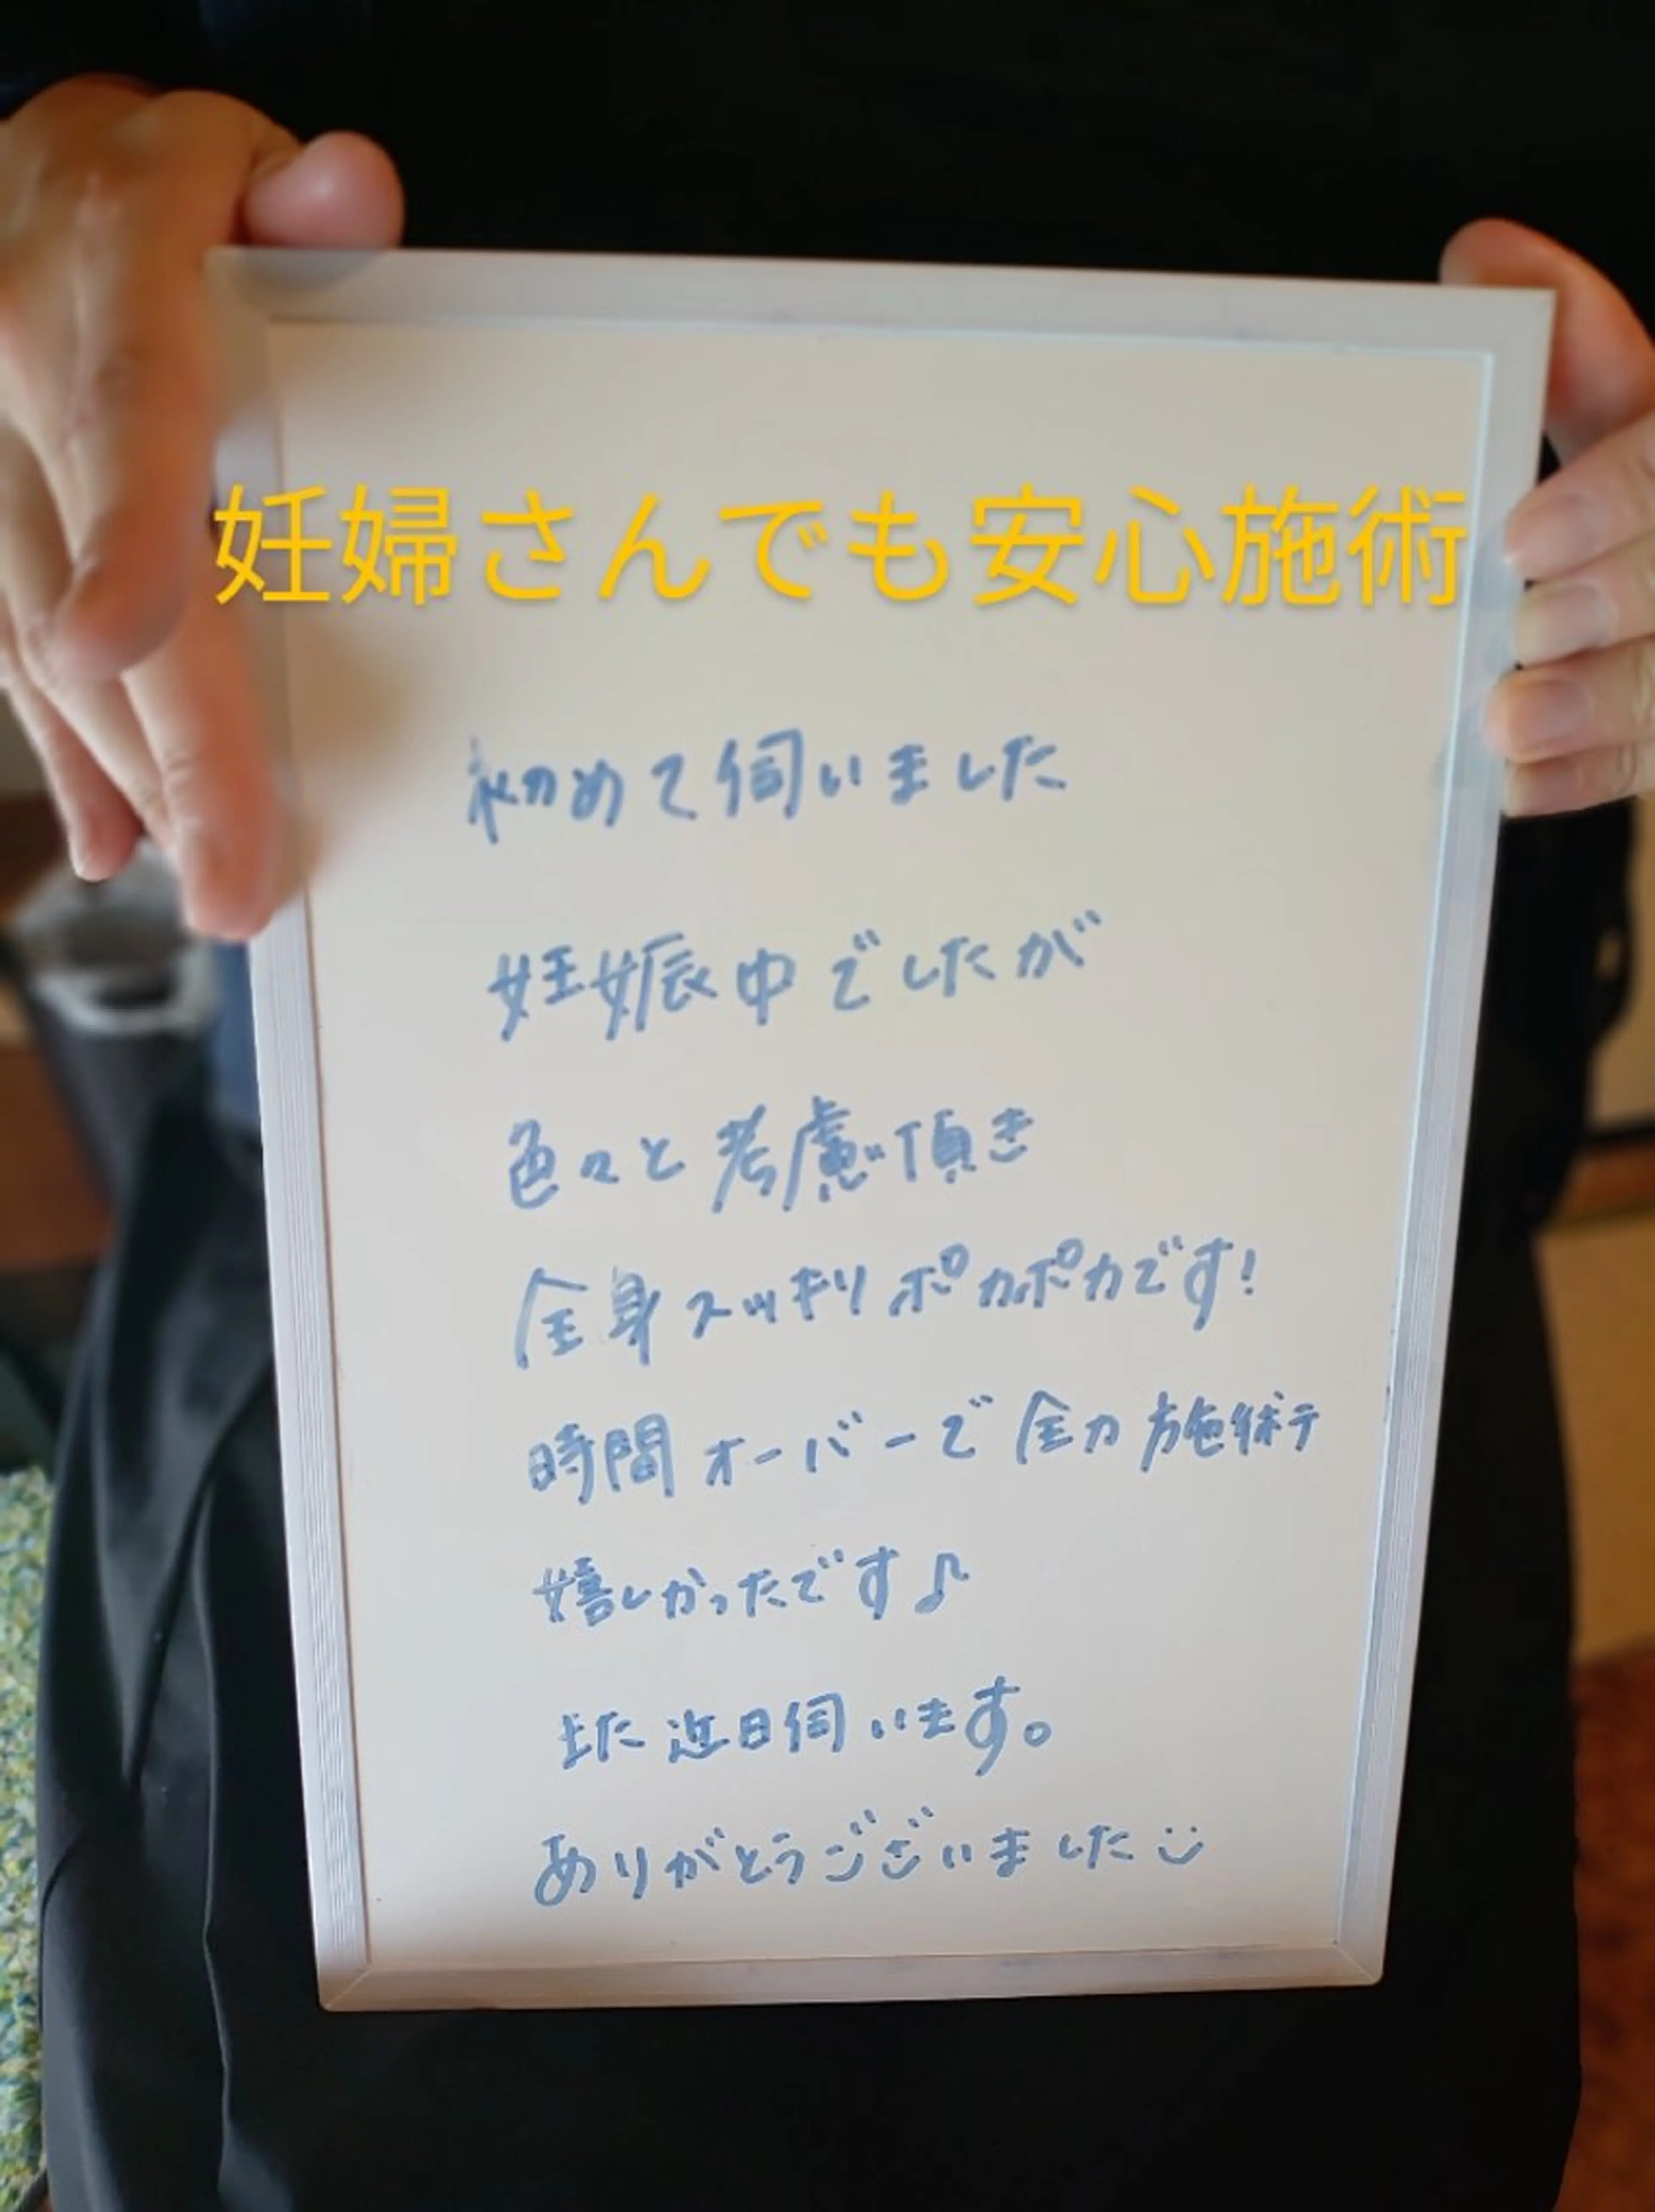 妊婦さんでも安心施術
初めて伺いました
妊娠中でしたが
色々と考慮頂き
全身スッキリポカポカです!
時間オーバーで全力施術テ
嬉しかったです♪
また近日伺います。
ありがとうございました